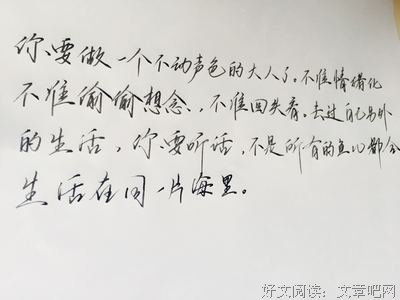 你要做一个不动声色的大人了。不准情绪化
不准偷偷想念，不准回头看。去过自己另外
的生活，你要听话，不是所有的鱼儿都会
生活在同一片海里。
好文阅读：文章吧网